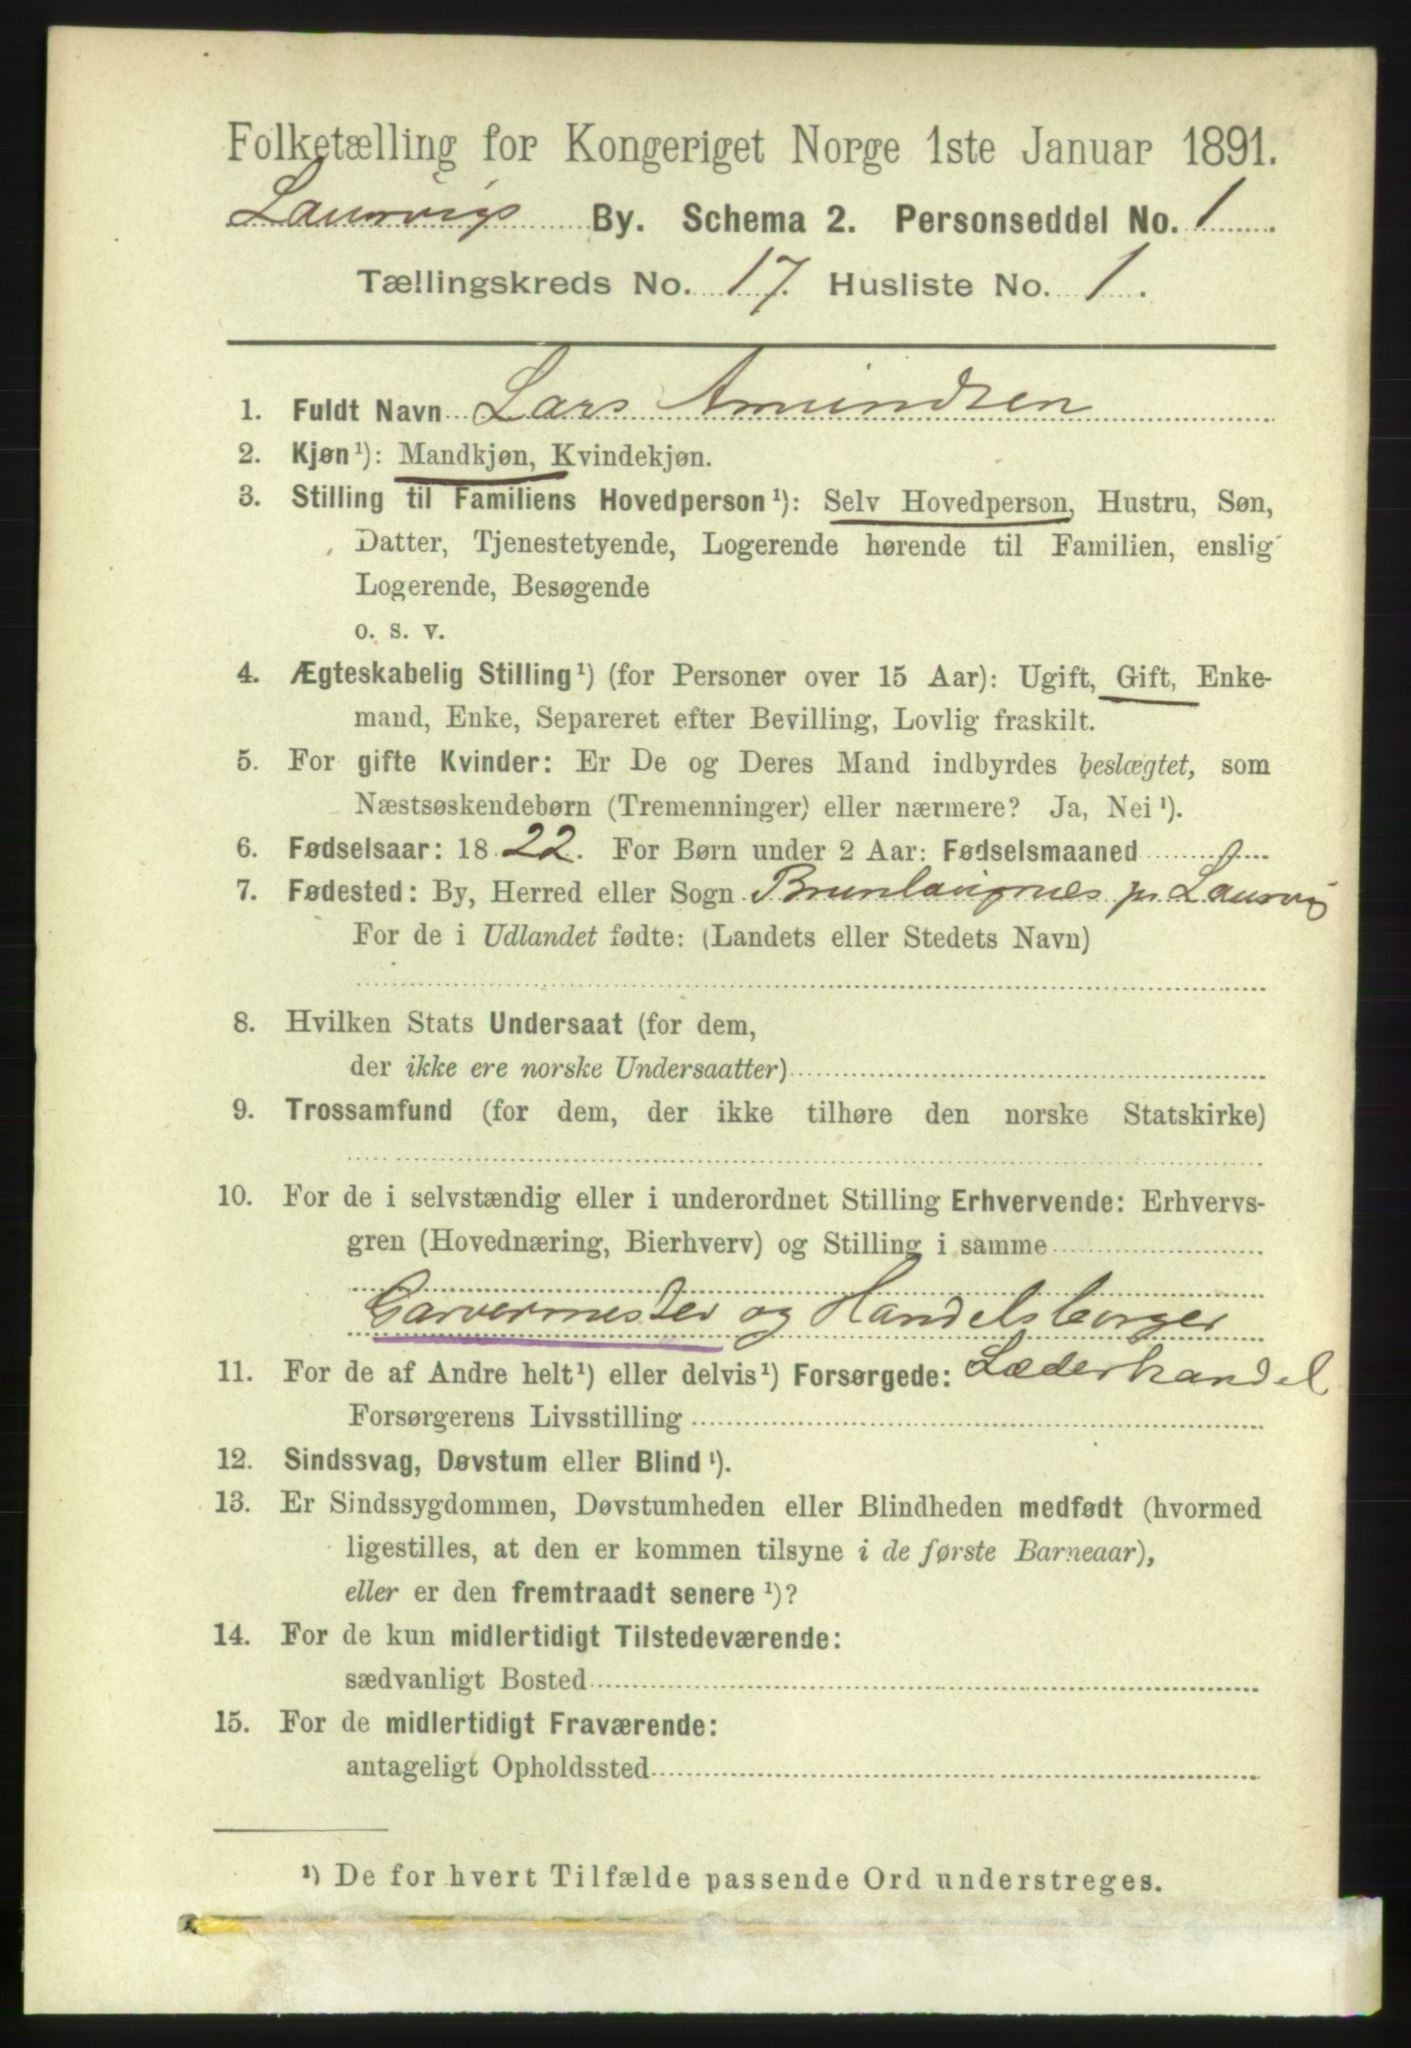 Folketælling for Kongeriget Norge 1ste Januar 1891.
Laurvigs By. Schema 2. Personseddel No. 1
Tællingskreds No. 17. Husliste No. 1.
1. Fuldt Navn Lars Amundsen
2. Kjøn¹): Mandkjøn, Kvindekjøn.
3. Stilling til Familiens Hovedperson¹): Selv Hovedperson, Hustru, Søn,
Datter, Tjenestetyende, Logerende hørende til Familien, enslig
Logerende, Besøgende
o. s. v.
4. Ægteskabelig Stilling¹) (for Personer over 15 Aar): Ugift, Gift, Enke-
mand, Enke, Separeret efter Bevilling, Lovlig fraskilt.
5. For gifte Kvinder: Er De og Deres Mand indbyrdes beslægtet, som
Næstsøskendebørn (Tremenninger) eller nærmere? Ja, Nei¹).
6. Fødselsaar: 1822. For Børn under 2 Aar: Fødselsmaaned
7. Fødested: By, Herred eller Sogn Brunlaugnes pr Laurvig
For de i Udlandet fødte: (Landets eller Stedets Navn)
8. Hvilken Stats Undersaat (for dem,
der ikke ere norske Undersaatter)
9. Trossamfund (for dem, der ikke tilhøre den norske Statskirke)
10. For de i selvstændig eller i underordnet Stilling Erhvervende: Erhvervs-
gren (Hovednæring, Bierhverv) og Stilling i samme
Garvermester og Handelsborger
11. For de af Andre helt¹) eller delvis¹) Forsørgede: Læderhandel
Forsørgerens Livsstilling
12. Sindssvag, Døvstum eller Blind¹).
13. Er Sindssygdommen, Døvstumheden eller Blindheden medfødt (hvormed
ligestilles, at den er kommen tilsyne i de første Barneaar),
eller er den fremtraadt senere¹)?
14. For de kun midlertidigt Tilstedeværende:
sædvanligt Bosted
15. For de midlertidigt Fraværende:
antageligt Opholdssted
¹) De for hvert Tilfælde passende Ord understreges.